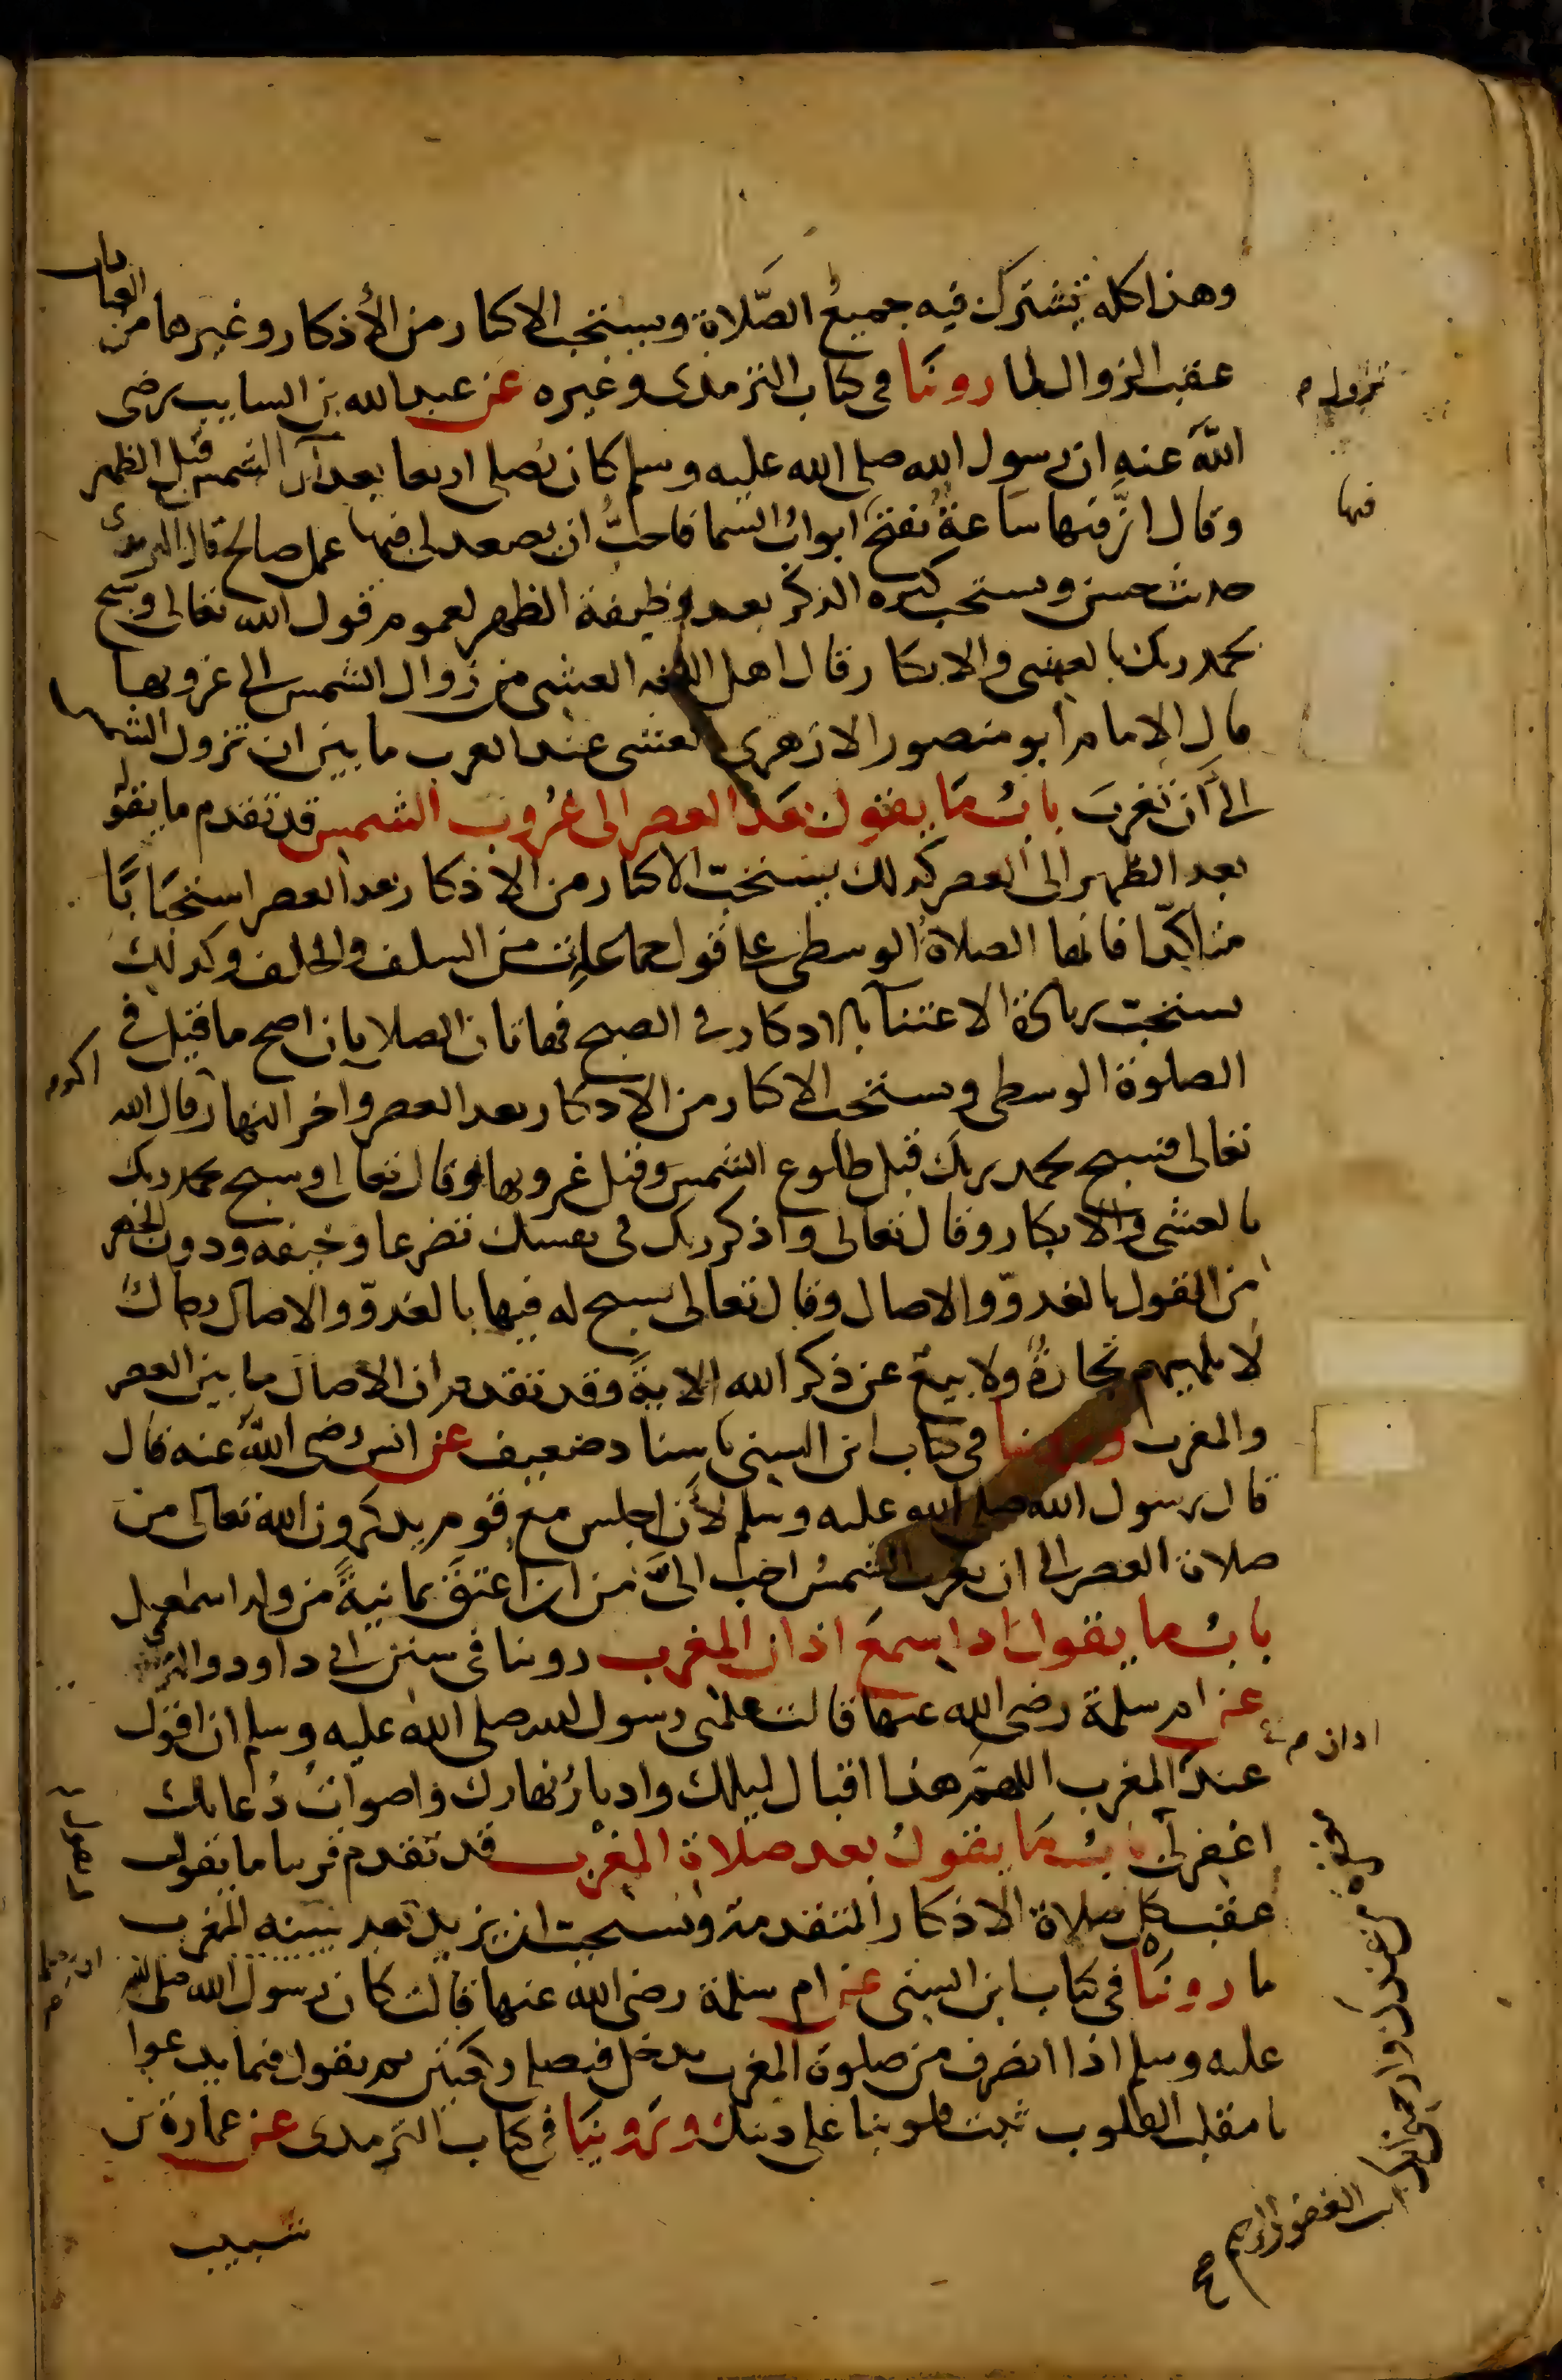 وهذا كله تشترك فيه جميع الصلاة ويستحب الاكثار من الأذكار وغيرها من العبادات
عقب الزوال لما روينا في كتاب الترمذي وغيره عن عبد الله بن السايب رضي
الله عنه ان رسول الله صلى الله عليه وسلم كان يصلي اربعا بعد ان الشمس قبل الظهر
وقال انها ساعة تفتح ابواب السما فاحب ان يصعد لي فيها عمل صالح قال الترمذي
حديث حسن ويستحب كثرة الذكر بعد وظيفة الظهر لعموم قول الله تعالى وسبح
بحمد ربك بالعشي والابكار قال اهل اللغه العشي من زوال الشمس الى غروبها
قال الامام ابو منصور الازهري العشي عند العرب ما بين ان تزول الشمس
الى أن تغرب باب ما يقول بعد العصر الى غروب الشمس قد تقدم ما يقول
بعد الظهر الى العصر كذلك يستحب الاكثار من الاذكار بعد العصر استحبابا
متاكدا فانها الصلاة الوسطى على قول جماعات من السلف والخلف وكذلك
يستحب زيادة الاعتنا بالاذكار في الصبح فهاتان الصلاتان اصح ما قيل في
الصلوة الوسطى ويستحب الاكثار من الاذكار بعد العصر واخر النهار قال الله
تعالى فسبح بحمد ربك قبل طلوع الشمس وقبل غروبها وقال تعالى وسبح بحمد ربك
بالعشي والابكار وقال تعالى واذكر ربك في نفسك تضرعا وخيفه ودون الجهر
من القول بالغدو والاصال وقال تعالى يسبح له فيها بالغدو والاصال رجال
لا تلهيهم تجارة ولا بيع عن ذكر الله الاية وقد تقدم ان الاصال ما بين العصر
والمغرب وروينا في كتاب ابن السني باسناد ضعيف عن انس رضي الله عنه قال
قال رسول الله صلى الله عليه وسلم لأن اجلس مع قوم يذكرون الله تعالى من
صلاة العصر الى ان تغرب الشمس احب الي من ان اعتق ثمانية من ولد اسمعيل
باب ما يقول اذا سمع اذان المغرب روينا في سنن ابي داود والترمذي
عن ام سلمة رضي الله عنها قالت علمني رسول الله صلى الله عليه وسلم ان اقول
عند المغرب اللهم هذا اقبال ليلك وادبار نهارك واصوات دعاتك
اغفر لي باب ما يقول بعد صلاة المغرب قد تقدم قريبا ما يقول
عقب كل صلاة الاذكار المتقدمة ويستحب ان يزيد بعد سنة المغرب
ما روينا في كتاب ابن السني عن ام سلمة رضي الله عنها قالت كان رسول الله صلى الله
عليه وسلم اذا انصرف من صلوة المغرب يدخل فيصلي ركعتين ثم يقول فيما يدعوا
يا مقلب القلوب ثبت قلوبنا على دينك وروينا في كتاب الترمذي عن عمارة بن
شبيب
تزول م
فيها
اذان م